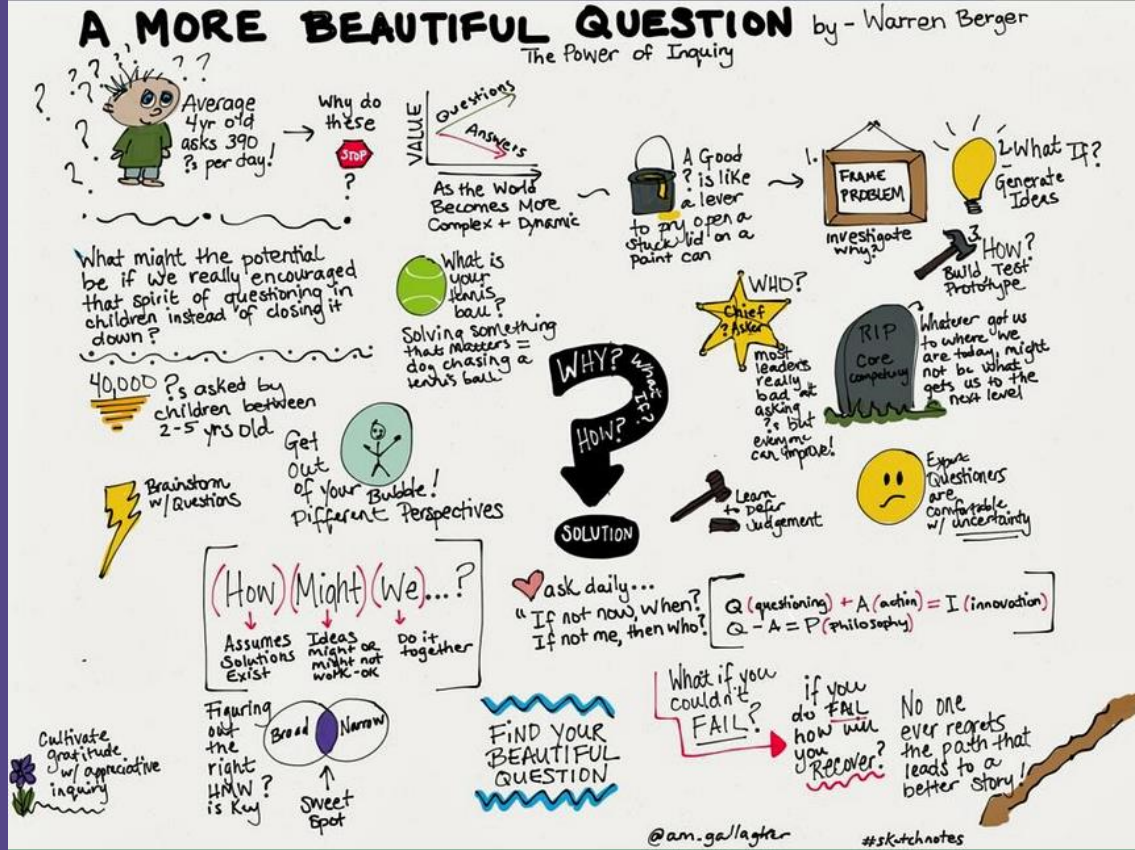 A MORE BEAUTIFUL QUESTION by - Warren Berger
The Power of Inquiry
? ? ? ? ? ? ? ? ? ?
Average
4yr old
asks 390
?s per day!
Why do
these
STOP
?
VALUE
Questions
Answers
As the World
Becomes More
Complex + Dynamic
A Good
? is like
a lever
to pry open a
stuck lid on a
paint can
1.
FRAME
PROBLEM
investigate
why?
2. What If?
Generate
Ideas
3.
HOW?
Build Test
Prototype
What might the potential
be if we really encouraged
that spirit of questioning in
children instead of closing it
down?
What is
your
tennis
ball?
Solving something
that matters =
dog chasing a
tennis ball
WHO?
Chief
? Asker
most
leaders
really
bad at
asking
?s but
everyone
can improve!
RIP
Core
competency
Whatever got us
to where we
are today, might
not be what
gets us to the
next level
40,000 ?s asked by
children between
2-5 yrs old
Get
out
of your Bubble!
Different Perspectives
WHY?
What
If?
HOW?
SOLUTION
Brainstorm
w/ Questions
Learn
to Defer
Judgement
Expert
Questioners
are
comfortable
w/ uncertainty
(How) (Might) (We)...?
Assumes
Solutions
Exist
Ideas
might or
might not
work-ok
Do it
together
ask daily...
"If not now, when?
If not me, then who?
Q (questioning) + A (action) = I (innovation)
Q - A = P (philosophy)
Cultivate
gratitude
w/ appreciative
inquiry
Figuring
out
the
right
HMW ?
is Key
Broad
Narrow
Sweet
Spot
FIND YOUR
BEAUTIFUL
QUESTION
What if you
couldn't
FAIL?
if you
do FAIL
how will
you
Recover?
No one
ever regrets
the path that
leads to a
better story!
@am.gallagher
#sketchnotes